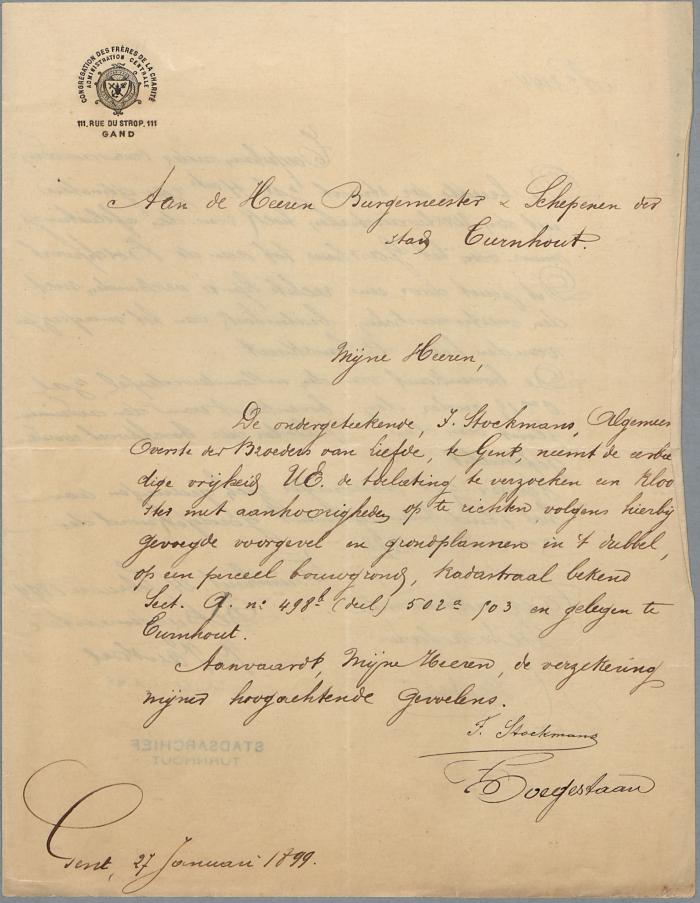 CONGRÉGATION DES FRÈRES DE LA CHARITÉ
ADMINISTRATION CENTRALE
111. RUE DU STROP. 111
GAND
Aan de Heeren Burgemeester & Schepenen der
stad Turnhout.
Mijne Heeren,
De ondergeteekende, F. Stockmans, Algemeen
Overste der Broeders van Liefde, te Gent, neemt de eerbie
dige vrijheid UE. de toelating te verzoeken een kloo
ster met aanhoorigheden op te richten volgens hierbij
gevoegde voorgevel en grondplannen in 't dubbel,
op een perceel bouwgrond, kadastraal bekend
Sect. n: 498 (deel) 502a 503 en gelegen te
Turnhout.
Aanvaardt, Mijne Heeren, de verzekering
mijner hoogachtende gevoelens.
F. Stockmans
Toegestaan
Gent, 27 Januari 1899.
STADSARCHIEF
TURNHOUT